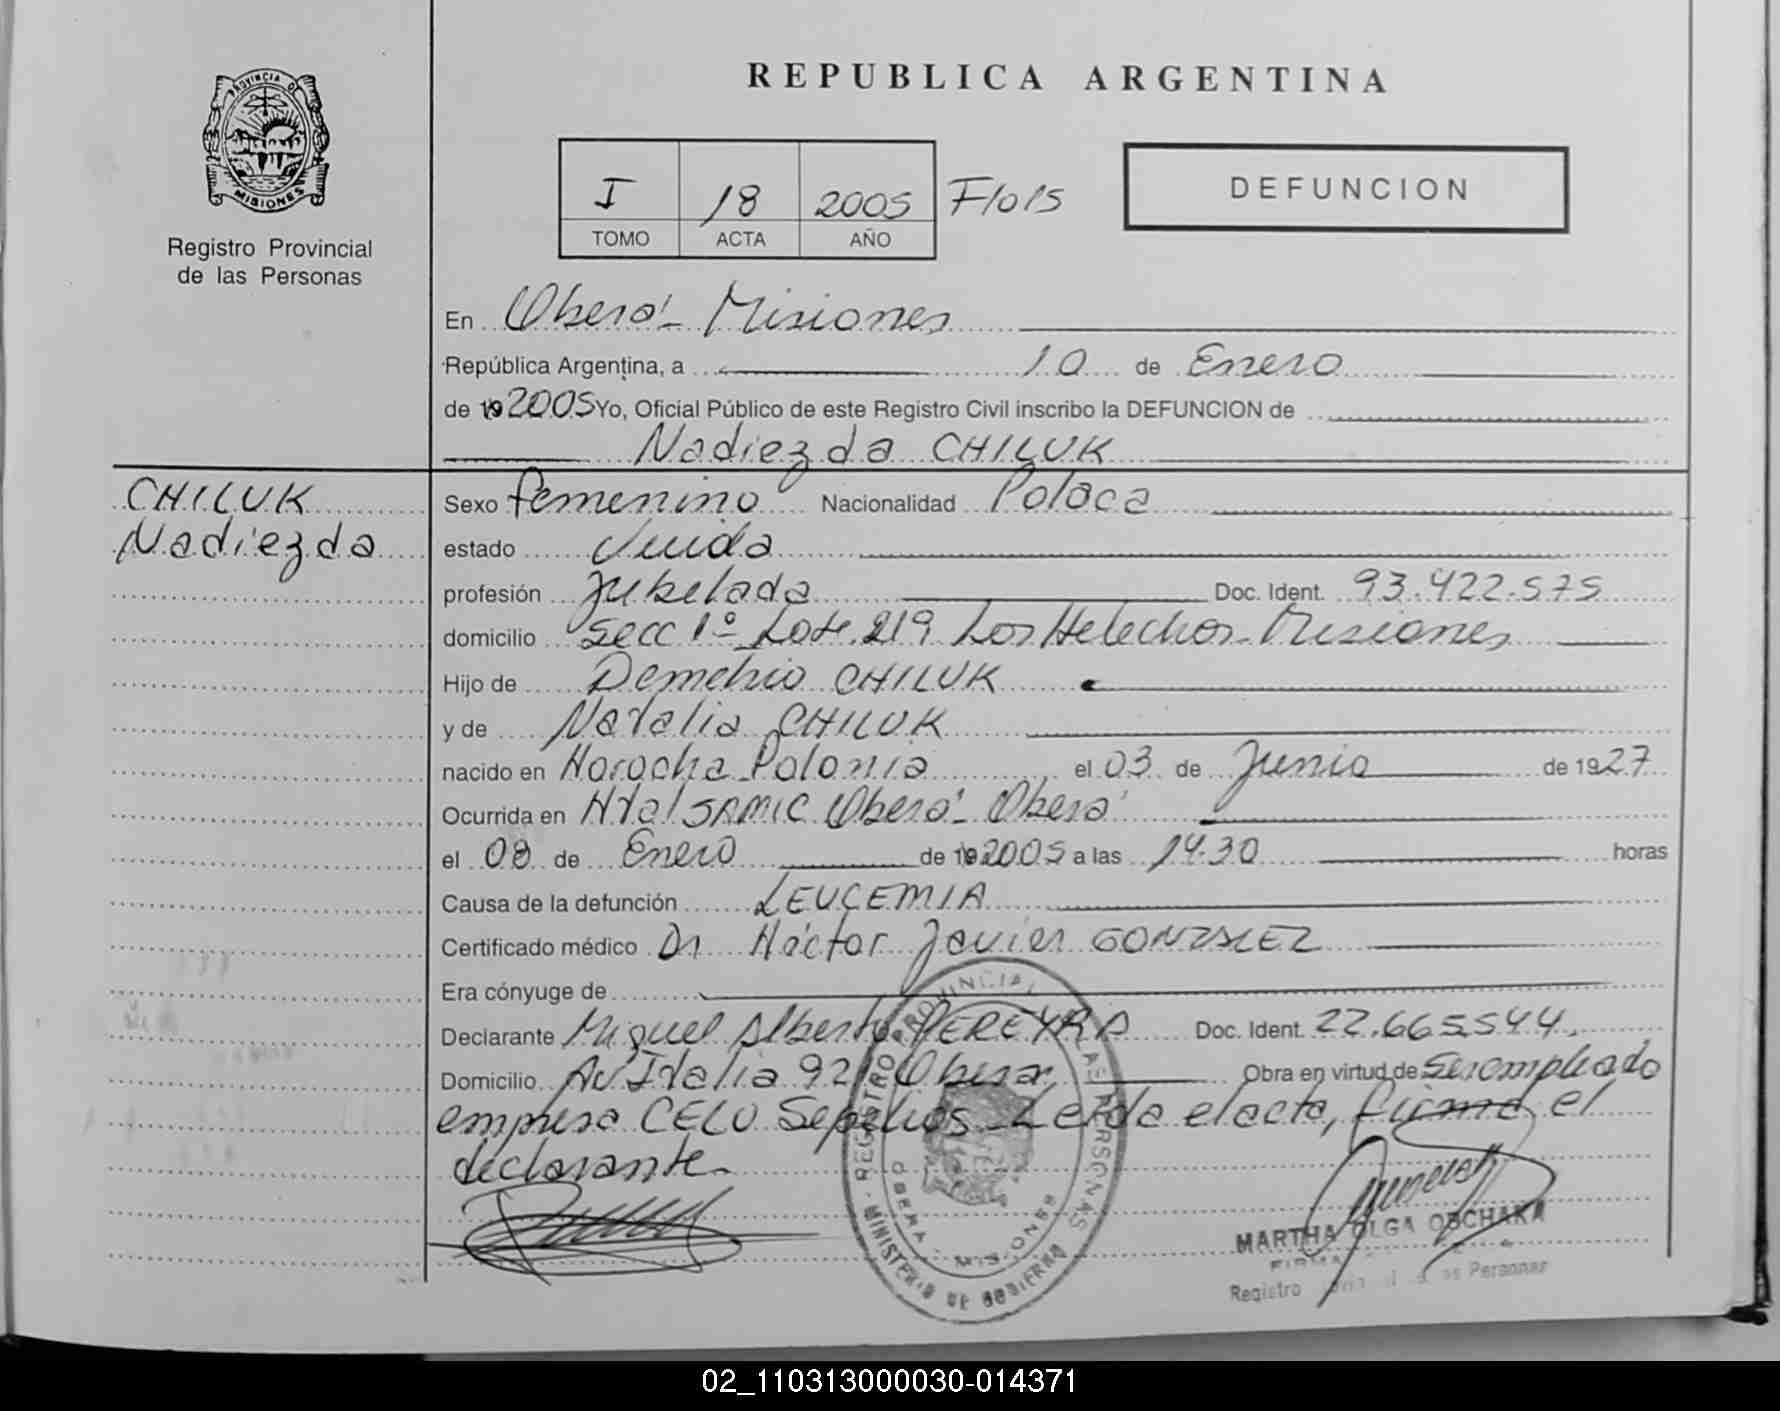 PROVINCIA D
MISIONES
Registro Provincial
de las Personas
REPUBLICA ARGENTINA
I 18 2005 Fº015
TOMO ACTA AÑO
DEFUNCION
En Oberá - Misiones
República Argentina, a 10 de Enero
de 19 2005 Yo, Oficial Público de este Registro Civil inscribo la DEFUNCION de
Nadiezda CHILUK
CHILUK
Nadiezda
Sexo femenino Nacionalidad Polaca
estado Viuda
profesión Jubilada Doc. Ident. 93.422.575
domicilio Secc 1º Lote 219 Los Helechos - Misiones
Hijo de Demetrio CHILUK
y de Natalia CHILUK
nacido en Horocha Polonia el 03 de Junio de 1927
Ocurrida en Htal SAMIC Oberá - Oberá
el 08 de Enero de 19 2005 a las 14.30 horas
Causa de la defunción LEUCEMIA
Certificado médico Dr Héctor Javier GONZALEZ
Era cónyuge de
Declarante Miguel Alberto PEREYRA Doc. Ident. 22.665.544.
Domicilio Av Italia 921 Oberá Obra en virtud de Ser empleado
empresa CELO Sepelios. Leída el acta, firma el
declarante.
REGISTRO PROVINCIAL LAS PERSONAS
MINISTERIO DE GOBIERNO
OBERA - MISIONES
MARTHA OLGA OBCHAKA
FIRMA
Registro Personas
02_110313000030-014371